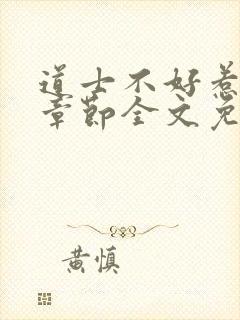 道士不好惹
章节全文免
黄慎